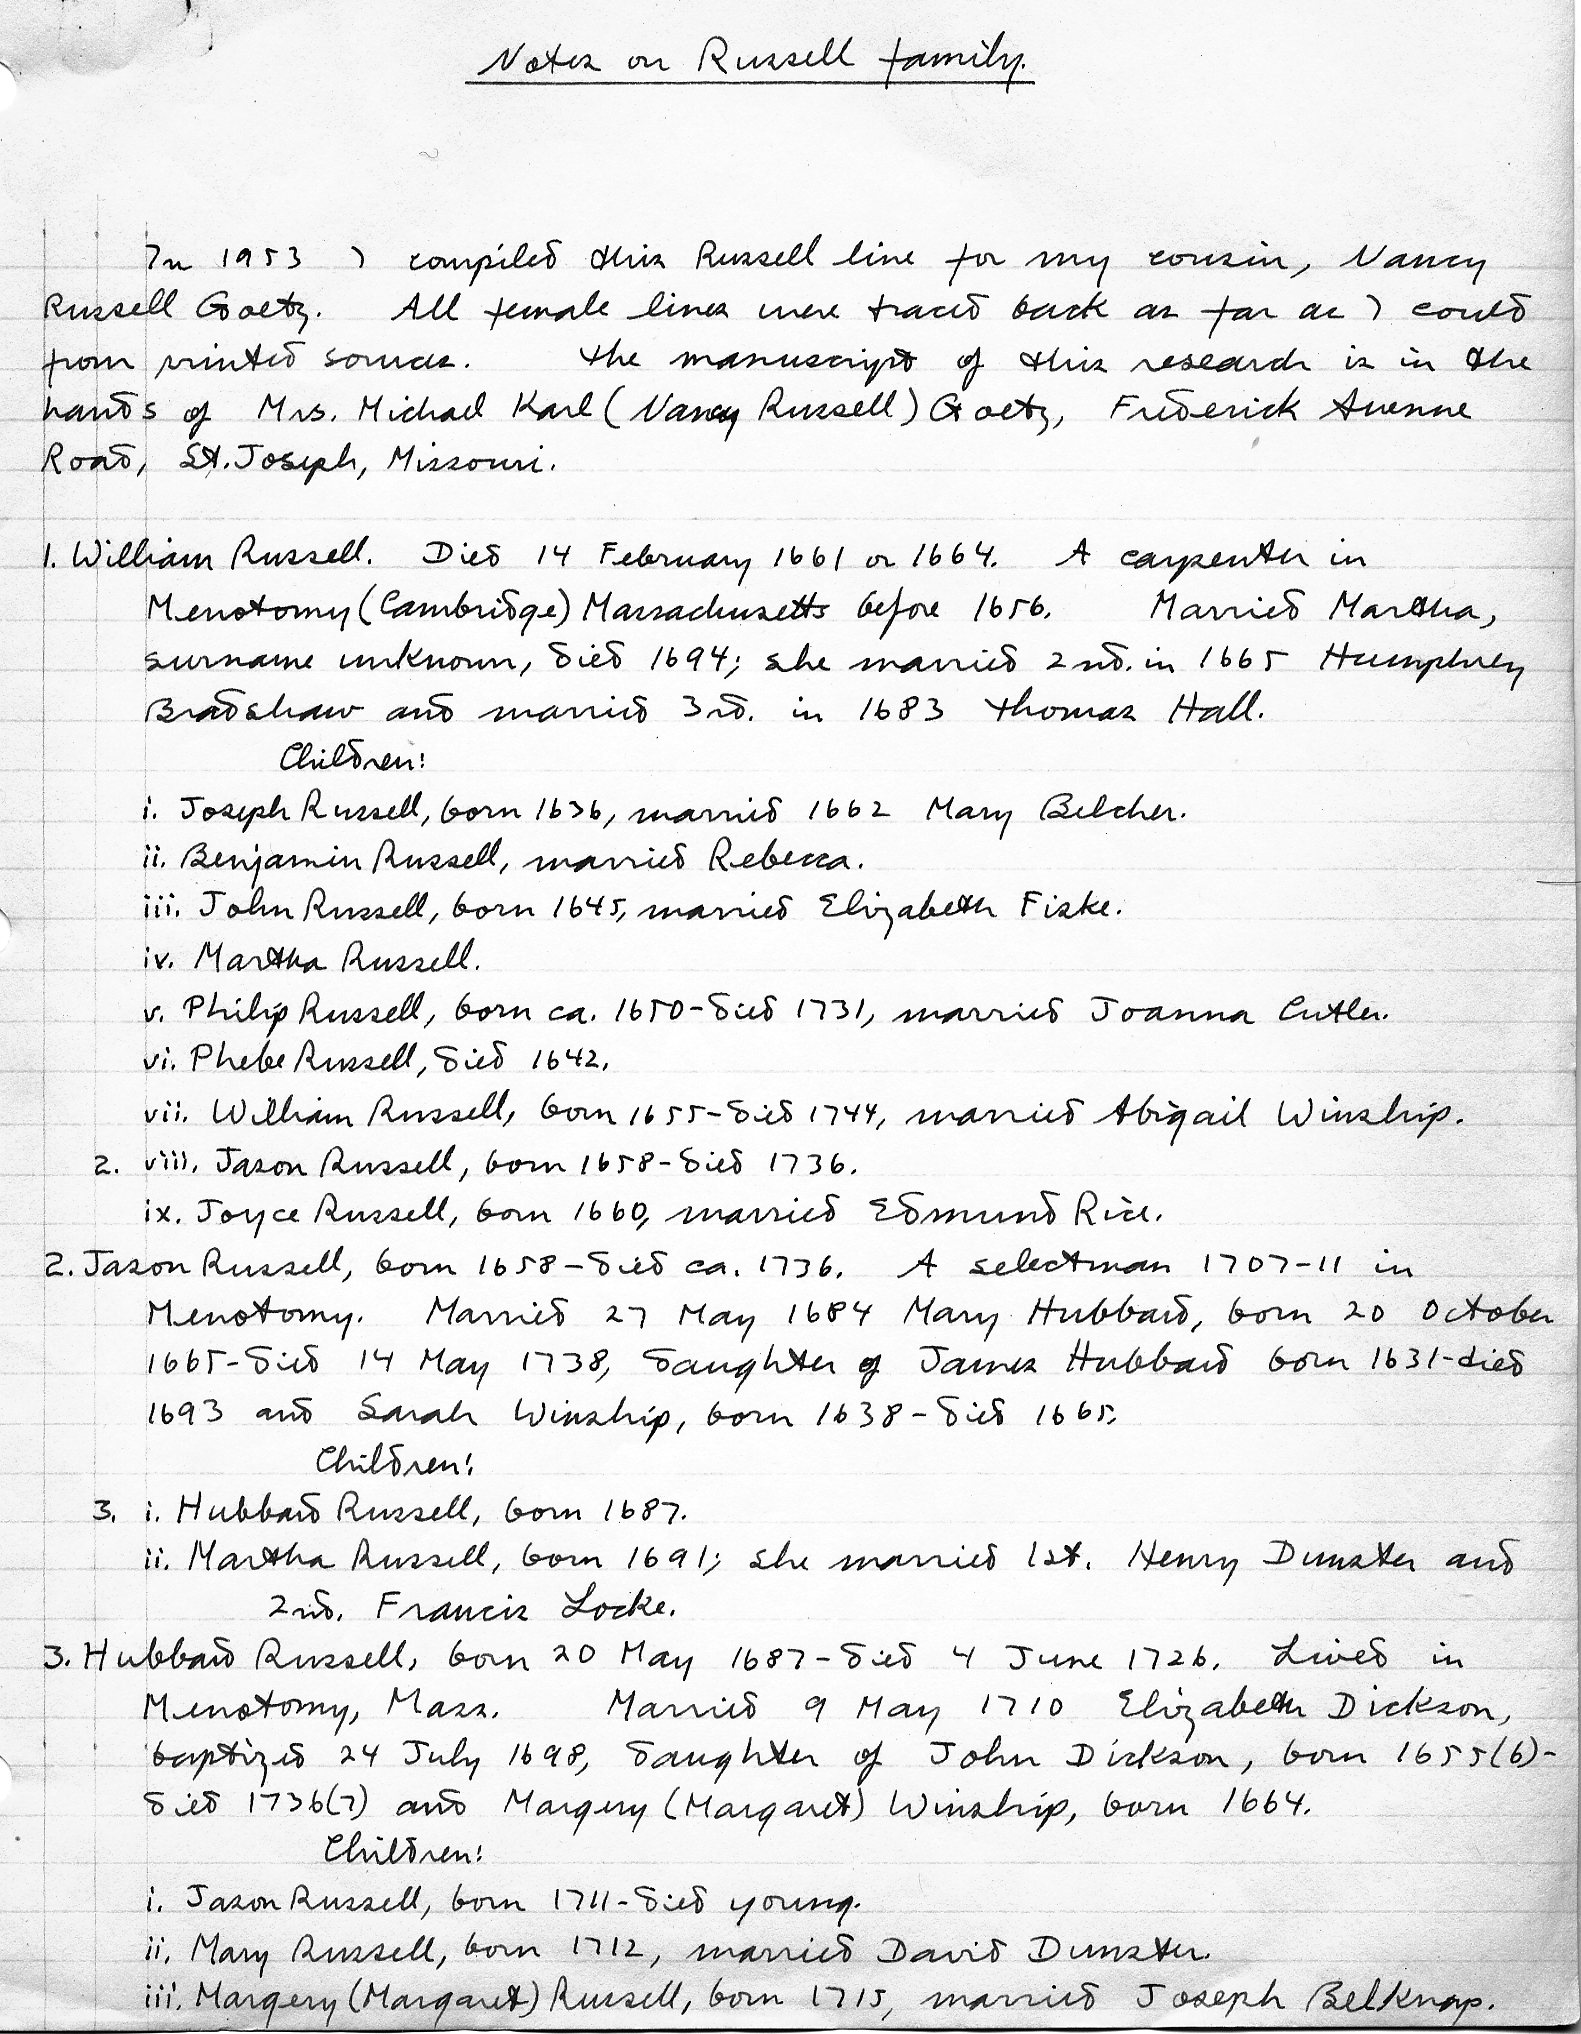 Notes on Russell family.
In 1953 I compiled this Russell line for my cousin, Nancy
Russell Goetz. All female lines were traced back as far as I could
from printed sources. The manuscript of this research is in the
hands of Mrs. Michael Karl (Nancy Russell) Goetz, Frederick Avenue
Road, St. Joseph, Missouri.
1. William Russell. Died 14 February 1661 or 1664. A carpenter in
Menotomy (Cambridge) Massachusetts before 1656. Married Martha,
surname unknown, died 1694; she married 2nd. in 1665 Humphrey
Bradshaw and married 3rd. in 1683 Thomas Hall.
Children:
i. Joseph Russell, born 1636, married 1662 Mary Belcher.
ii. Benjamin Russell, married Rebecca.
iii. John Russell, born 1645, married Elizabeth Fiske.
iv. Martha Russell.
v. Philip Russell, born ca. 1650-died 1731, married Joanna Cutler.
vi. Phebe Russell, died 1642.
vii. William Russell, born 1655-died 1744, married Abigail Winship.
2. viii. Jason Russell, born 1658-died 1736.
ix. Joyce Russell, born 1660, married Edmund Rice.
2. Jason Russell, born 1658-died ca. 1736. A selectman 1707-11 in
Menotomy. Married 27 May 1684 Mary Hubbard, born 20 October
1665-died 14 May 1738, daughter of James Hubbard born 1631-died
1693 and Sarah Winship, born 1638-died 1665.
Children:
3. i. Hubbard Russell, born 1687.
ii. Martha Russell, born 1691; she married 1st. Henry Dunster and
2nd. Francis Locke.
3. Hubbard Russell, born 20 May 1687-died 4 June 1726. Lived in
Menotomy, Mass. Married 9 May 1710 Elizabeth Dickson,
baptized 24 July 1698, daughter of John Dickson, born 1655(6)-
died 1736(7) and Margery (Margaret) Winship, born 1664.
Children:
i. Jason Russell, born 1711-died young.
ii. Mary Russell, born 1712, married David Dunster.
iii. Margery (Margaret) Russell, born 1715, married Joseph Belknap.